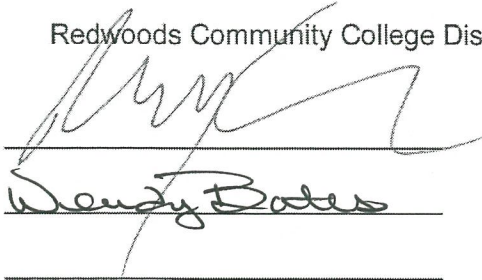 Redwoods Community College Dis
Wendy Bates